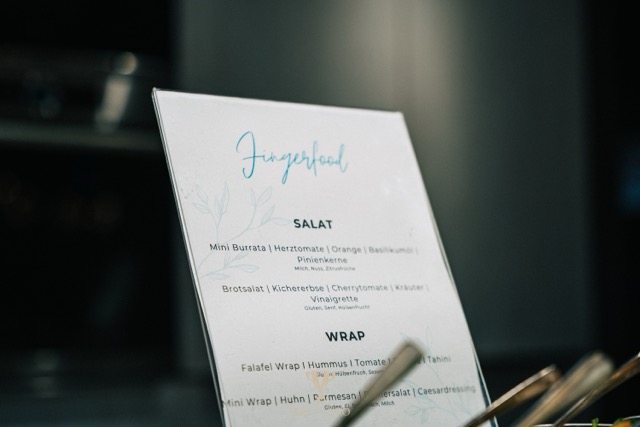 Fingerfood
SALAT
Mini Burrata | Herztomate | Orange | Basilikumöl |
Pinienkerne
Milch, Nuss, Zitrusfrüchte
Brotsalat | Kichererbse | Cherrytomate | Kräuter |
Vinaigrette
Gluten, Senf, Hülsenfrucht
WRAP
Falafel Wrap | Hummus | Tomate | Tahini
Hülsenfruch,
Mini Wrap | Huhn | Parmesan | Caesardressing
Gluten, Milch